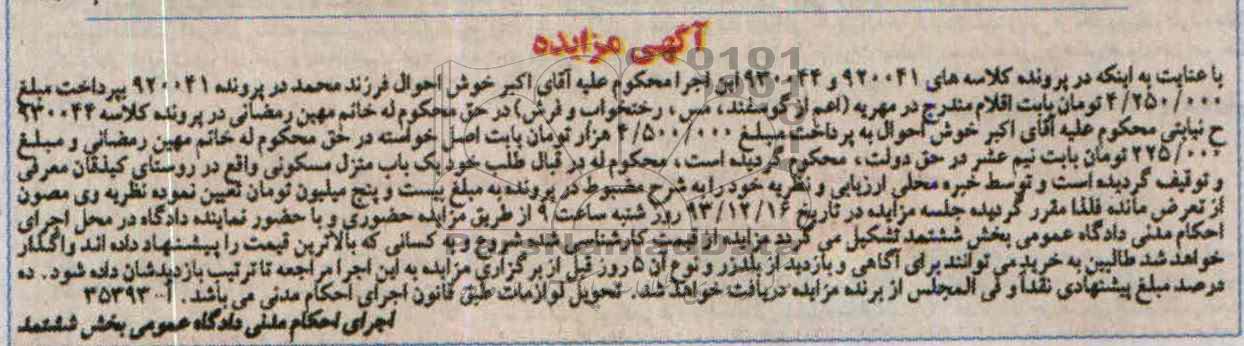 آگهی مزایده
با عنایت به اینکه در پرونده کلاسه های ۹۲۰۰۴۱ و ۹۳۰۰۴۴ این اجرا محکوم علیه آقای اکبر خوش احوال فرزند محمد در پرونده ۹۲۰۰۴۱ بپرداخت مبلغ
۴/۲۵۰/۰۰۰ تومان بابت اقلام مندرج در مهریه (اعم از گوسفند، مس، رختخواب و فرش) در حق محکوم له خانم مهین رمضانی در پرونده کلاسه ۹۳۰۰۴۴
ح نیابتی محکوم علیه آقای اکبر خوش احوال به پرداخت مبلغ ۴/۵۰۰/۰۰۰ هزار تومان بابت اصل خواسته در حق محکوم له خانم مهین رمضانی و مبلغ
۲۲۵/۰۰۰ تومان بابت نیم عشر در حق دولت، محکوم گردیده است، محکوم له در قبال طلب خود یک باب منزل مسکونی واقع در روستای کیذقان معرفی
و توقیف گردیده است و توسط خبره محلی ارزیابی و نظریه خود را به شرح مضبوط در پرونده به مبلغ بیست و پنج میلیون تومان تعیین نموده نظریه وی مصون
از تعرض مانده فلذا مقرر گردیده جلسه مزایده در تاریخ ۹۳/۱۲/۱۶ روز شنبه ساعت ۹ از طریق مزایده حضوری و با حضور نماینده دادگاه در محل اجرای
احکام مدنی دادگاه عمومی بخش ششتمد تشکیل می گردد مزایده از قیمت کارشناسی شده شروع و به کسانی که بالاترین قیمت را پیشنهاد داده اند واگذار
خواهد شد طالبین به خرید می توانند برای آگاهی و بازدید از بلدزر و نوع آن ۵ روز قبل از برگزاری مزایده به این اجرا مراجعه تا ترتیب بازدیدشان داده شود. ده
درصد مبلغ پیشنهادی نقداً و فی المجلس از برنده مزایده دریافت خواهد شد. تحویل لوازمات طبق قانون اجرای احکام مدنی می باشد. آ-۳۵۳۹۳۰۰
اجرای احکام مدنی دادگاه عمومی بخش ششتمد